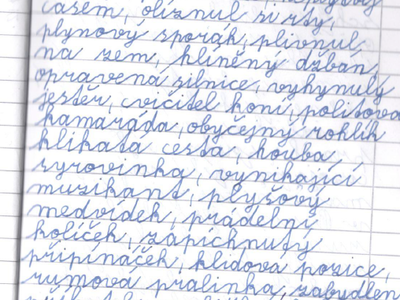 časem, olíznul si rty,
plynový sporák, plivnul
na zem, hliněný džbán,
opravená silnice, vyhynulý
ještěr, cvičitel koní, politova
kamaráda, obyčejný rohlík
klikatá cesta, houba,
syrovinka, vynikající
muzikant, plyšový
medvídek, prádelní
kolíček, zapíchnutý
připínáček, klidová pozice,
rumová pralinka, zabydlen